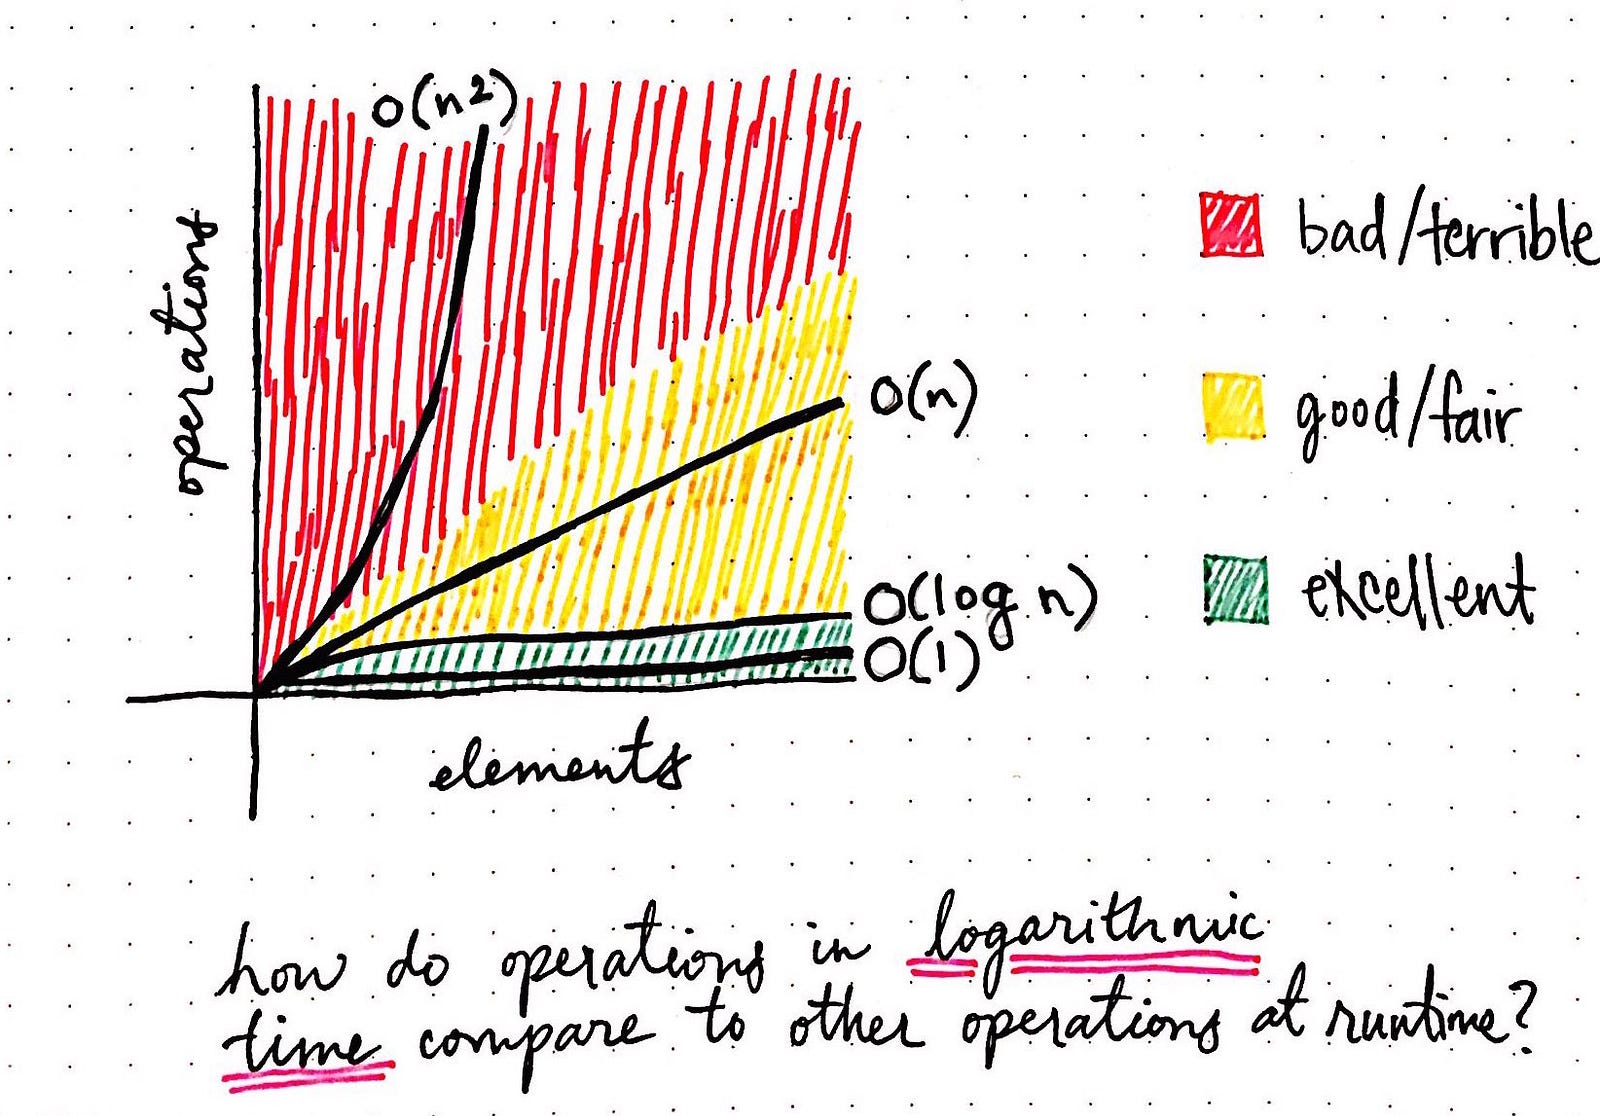 O(n2)
operations
bad/terrible
good/fair
O(n)
excellent
O(log n)
O(1)
elements
how do operations in logarithmic
time compare to other operations at runtime?